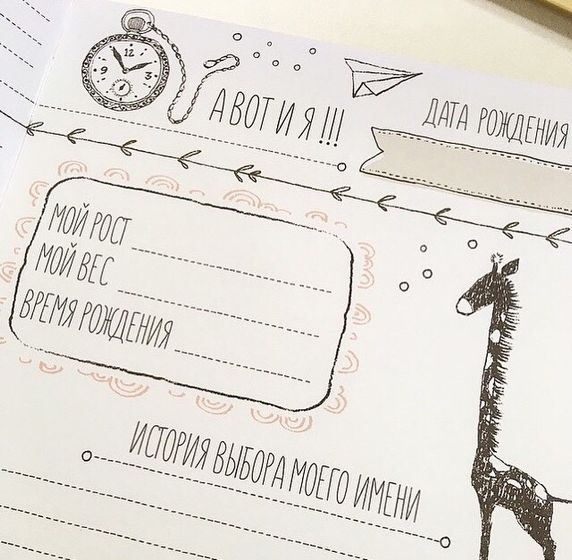 12
9
3
6
А ВОТ И Я!!!
ДАТА РОЖДЕНИЯ
МОЙ РОСТ
МОЙ ВЕС
ВРЕМЯ РОЖДЕНИЯ
ИСТОРИЯ ВЫБОРА МОЕГО ИМЕНИ